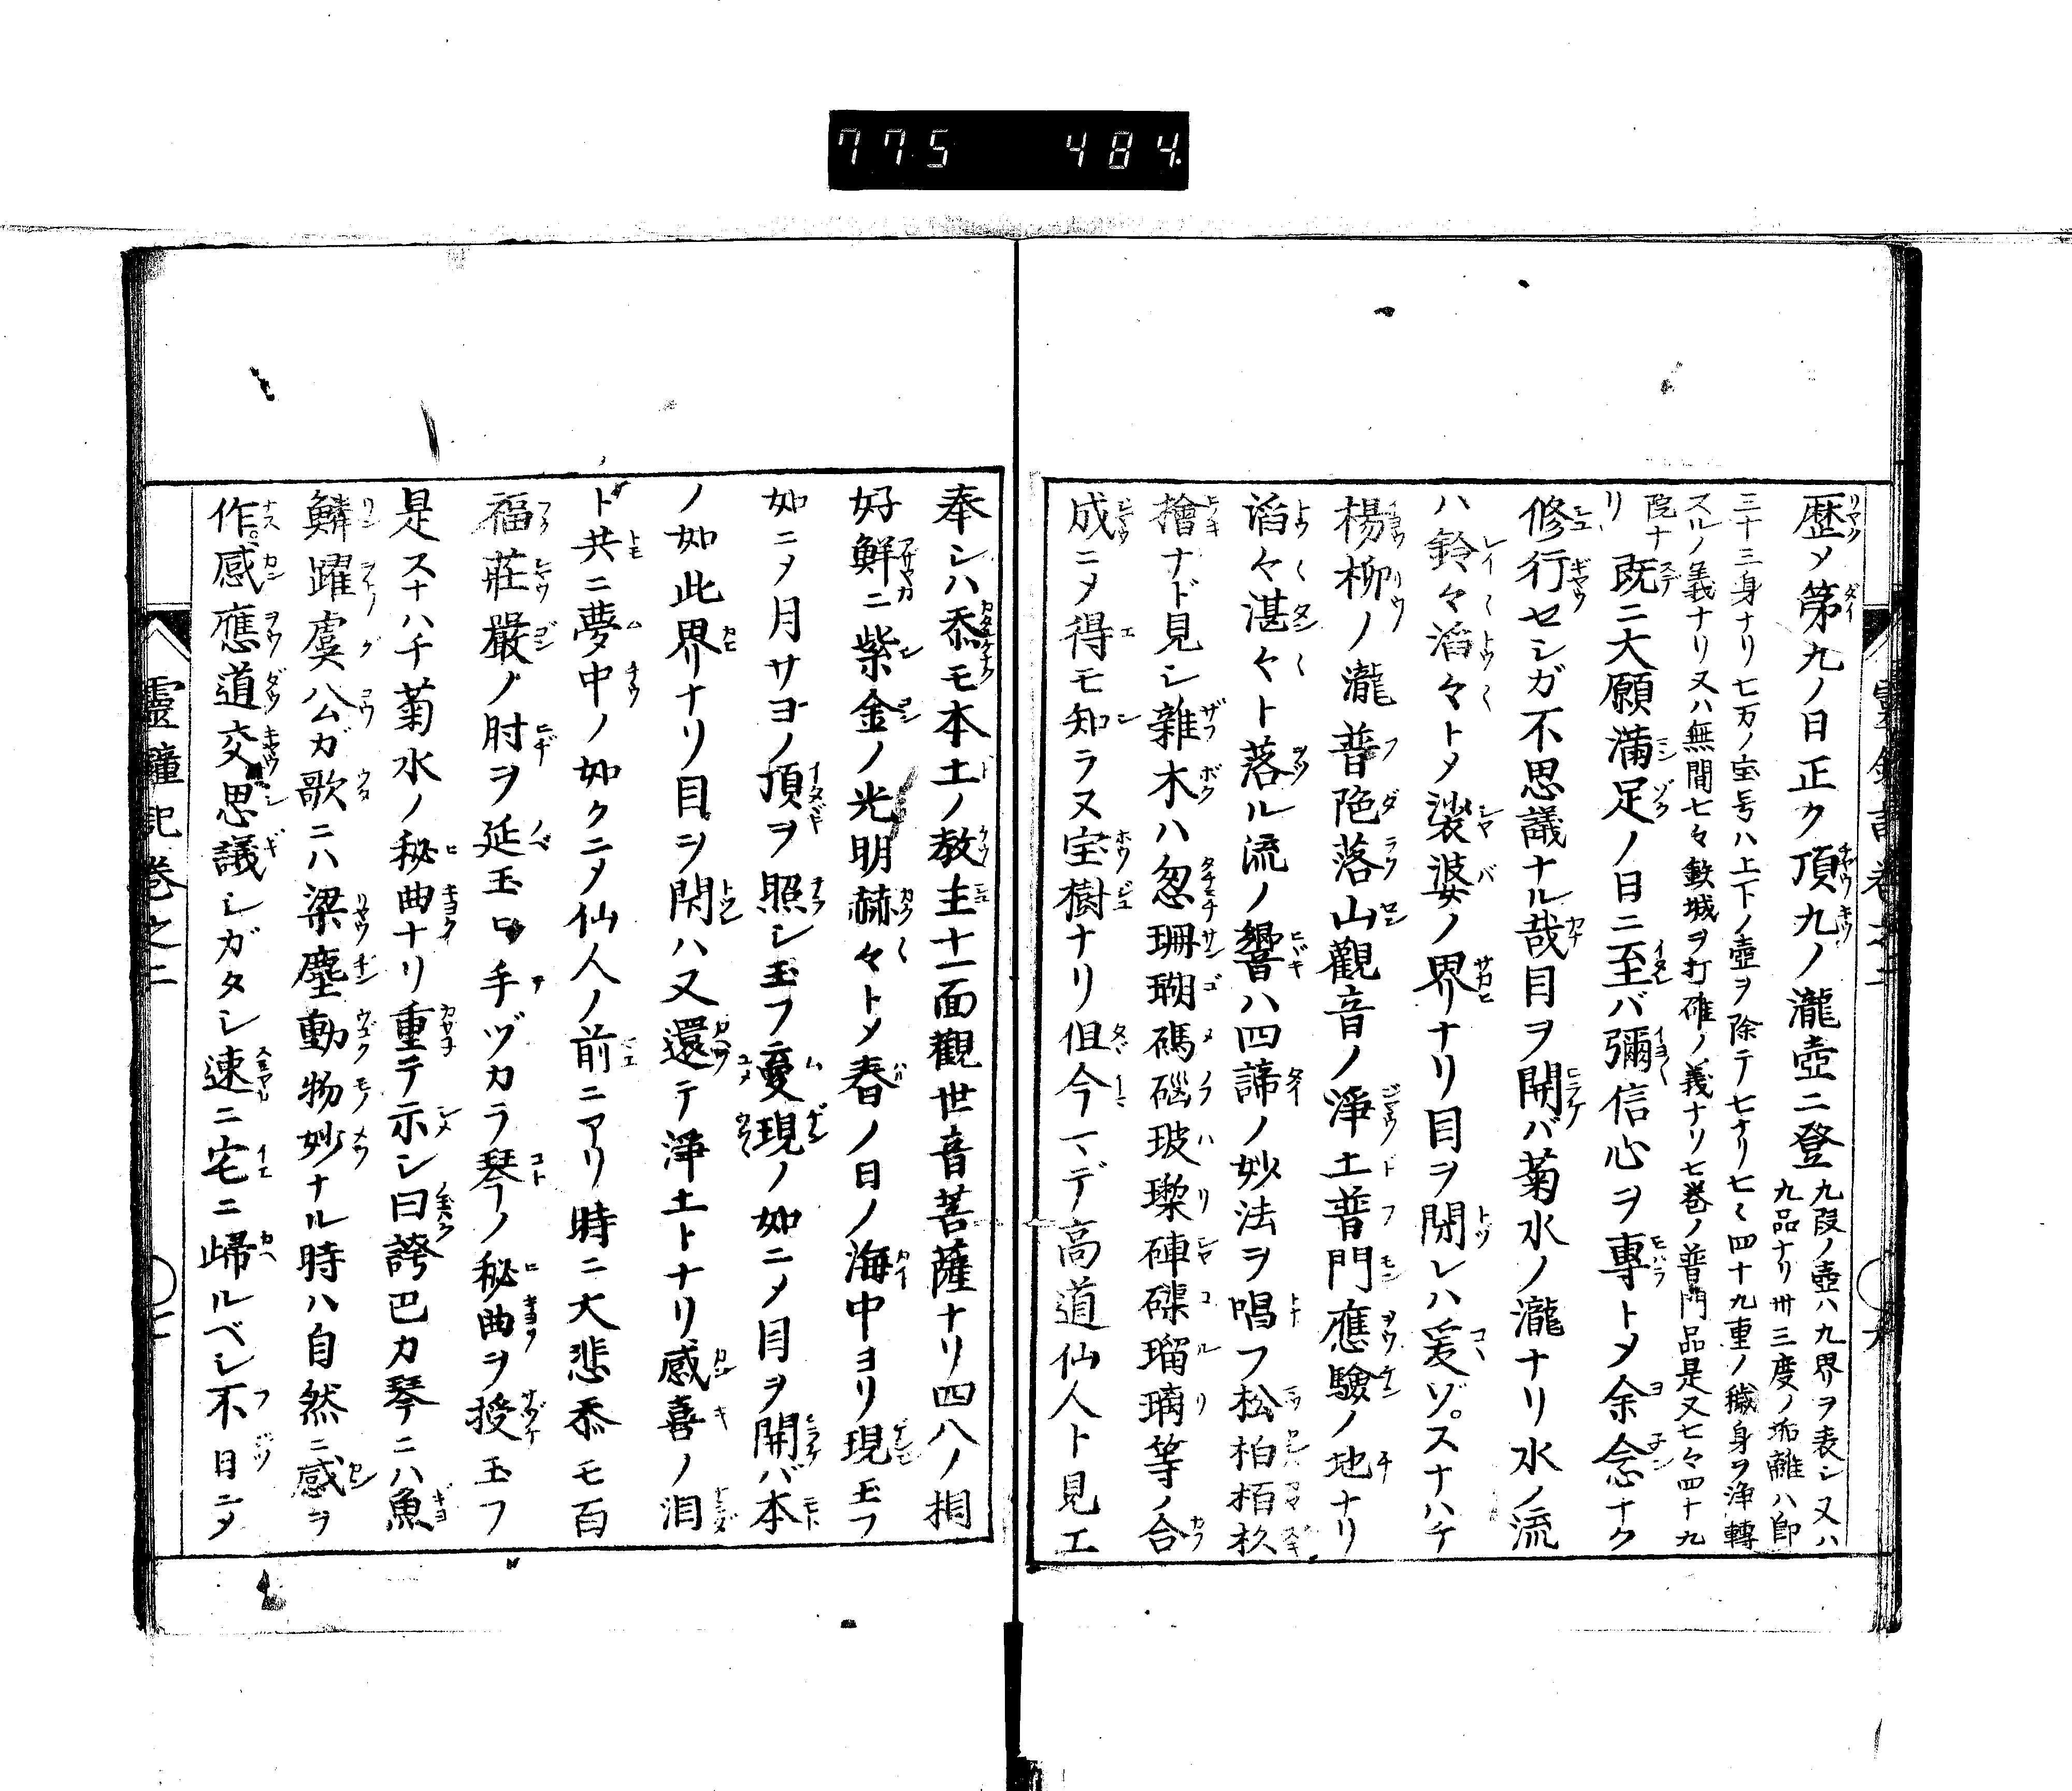 775 484
歴メ第九ノ日正ク頂九ノ瀧壺ニ登九段ノ壺ハ九界ヲ表シ又ハ
九品ナリ卅三度ノ垢離ハ即
三十三身ナリ七万ノ宝号ハ上下ノ壺ヲ除テ七ナリ七〻四十九重ノ穢身ヲ浄轉
スルノ義ナリ又ハ無間七々鉄城ヲ打碓ノ義ナリ七巻ノ普門品是又七々四十九
院ナ
リ既ニ大願滿足ノ日ニ至バ彌信心ヲ專トメ余念ナク
修行セシガ不思議ナル哉目ヲ開バ菊水ノ瀧ナリ水ノ流
ハ鈴々滔々トメ裟婆ノ界ナリ目ヲ閉レハ爰ゾスナハチ
楊柳ノ瀧普陁落山觀音ノ淨土普門應驗ノ地ナリ
滔々湛々ト落ル流ノ響ハ四諦ノ妙法ヲ唱フ松柏栢杦
檜ナド見シ雜木ハ忽珊瑚碼碯玻瓈硨磲瑠璃等ノ合
成ニメ得モ知ラヌ宝樹ナリ但今マデ高道仙人ト見エ
奉シハ忝モ本土ノ教主十一面觀世音菩薩ナリ四八ノ相
好鮮ニ紫金ノ光明赫々トメ春ノ日ノ海中ヨリ現玉フ
如ニメ月サヨノ頂ヲ照シ玉フ夢現ノ如ニメ目ヲ開バ本
ノ如此界ナリ目ヲ閉ハ又還テ淨土トナリ感喜ノ泪
ト共ニ夢中ノ如クニメ仙人ノ前ニアリ時ニ大悲忝モ百
福莊嚴ノ肘ヲ延玉ヒ手ヅカラ琴ノ秘曲ヲ授玉フ
是スナハチ菊水ノ秘曲ナリ重テ示シ曰誇巴カ琴ニハ魚
鱗躍虞公ガ歌ニハ梁塵動物妙ナル時ハ自然ニ感ヲ
作感應道交思議シガタシ速ニ宅ニ皈ルベシ不日ニメ
靈鐘記巻之二